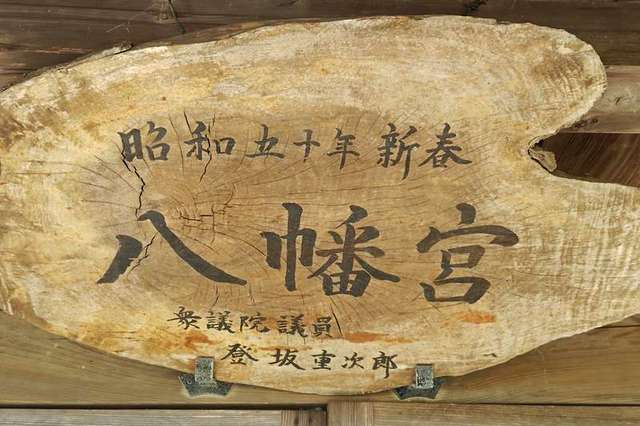 昭和五十年新春
八幡宮
衆議院議員
登坂重次郎